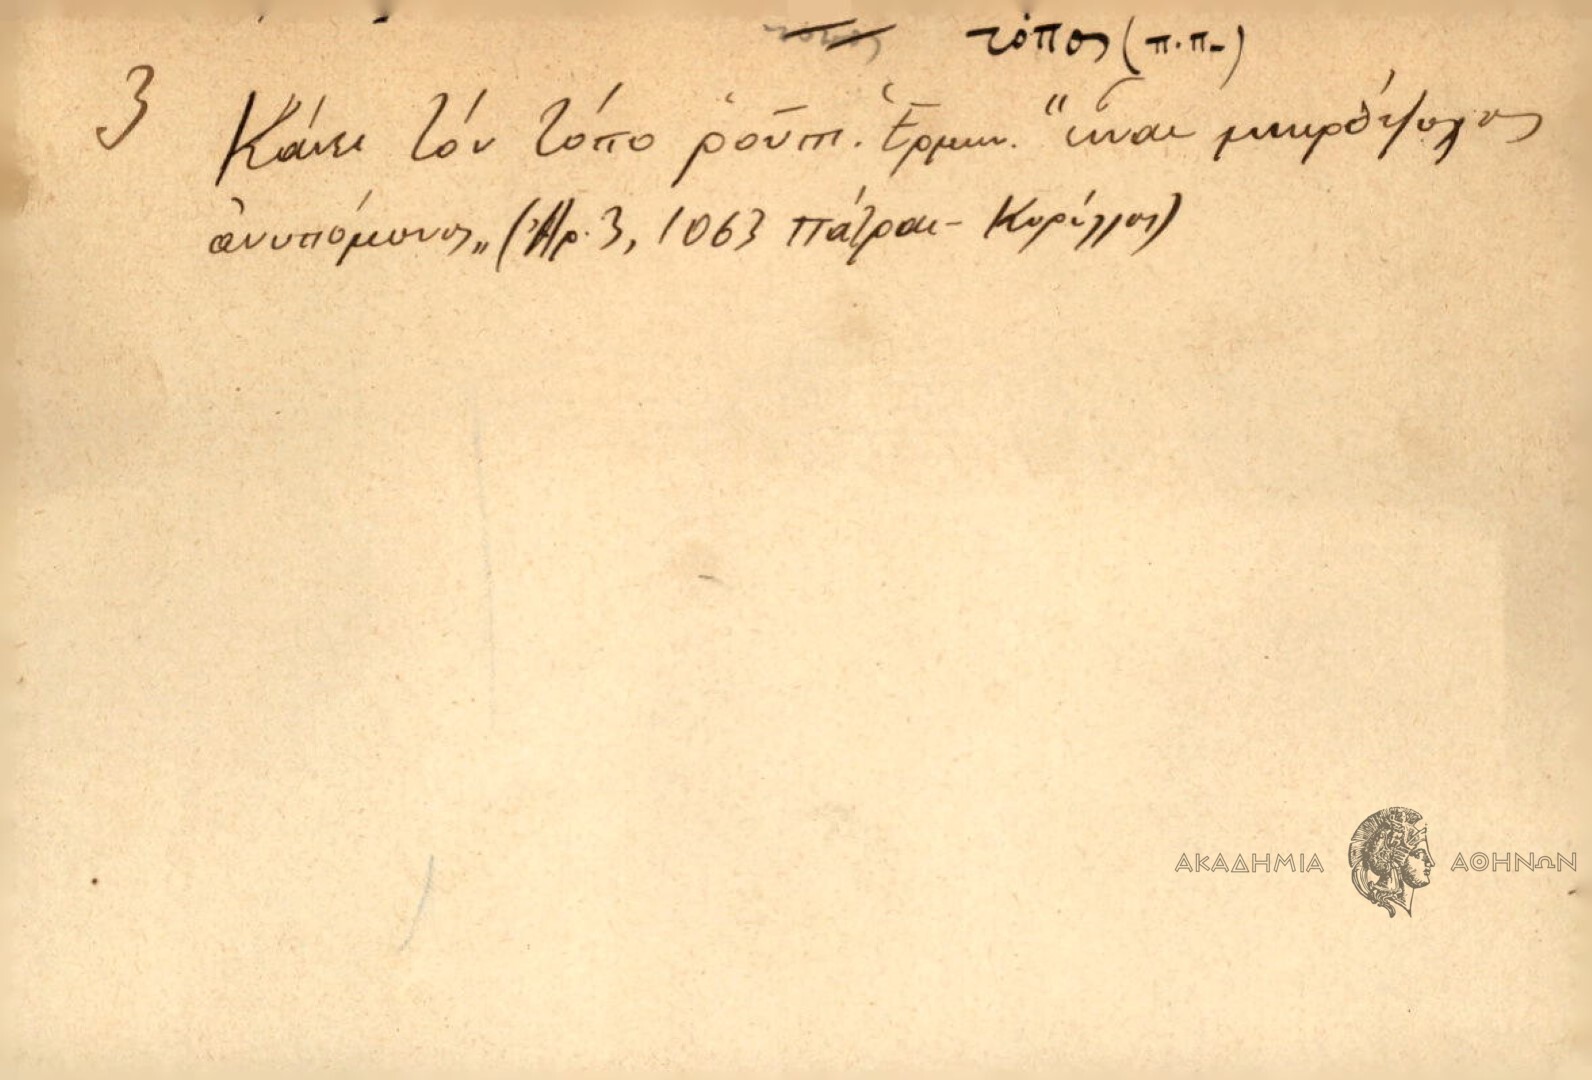 τόπος (π.π.)
3 Κάνει τόν τόπο ῥοῦπι. Ἑρμην. "εἶναι μικρόψυχος
ἀνυπόμονος„ (Ἀρ. 3, 1063 Πάτραι - Κορύλλος)
ΑΚΑΔΗΜΙΑ ΑΘΗΝΩΝ